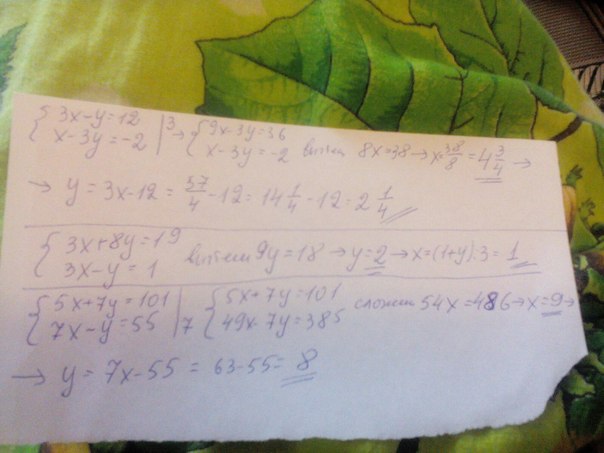 {3x-y=12 |3 → {9x-3y=36
{x-3y=-2 {x-3y=-2 вычтем 8x=38 → x=38/8=4 3/4 →
→ y=3x-12=57/4-12=14 1/4-12=2 1/4
{3x+8y=19
{3x-y=1 вычтем 9y=18 → y=2 → x=(1+y):3=1
{5x+7y=101 {5x+7y=101
{7x-y=55 |7 {49x-7y=385 сложим 54x=486 → x=9 →
→ y=7x-55=63-55=8